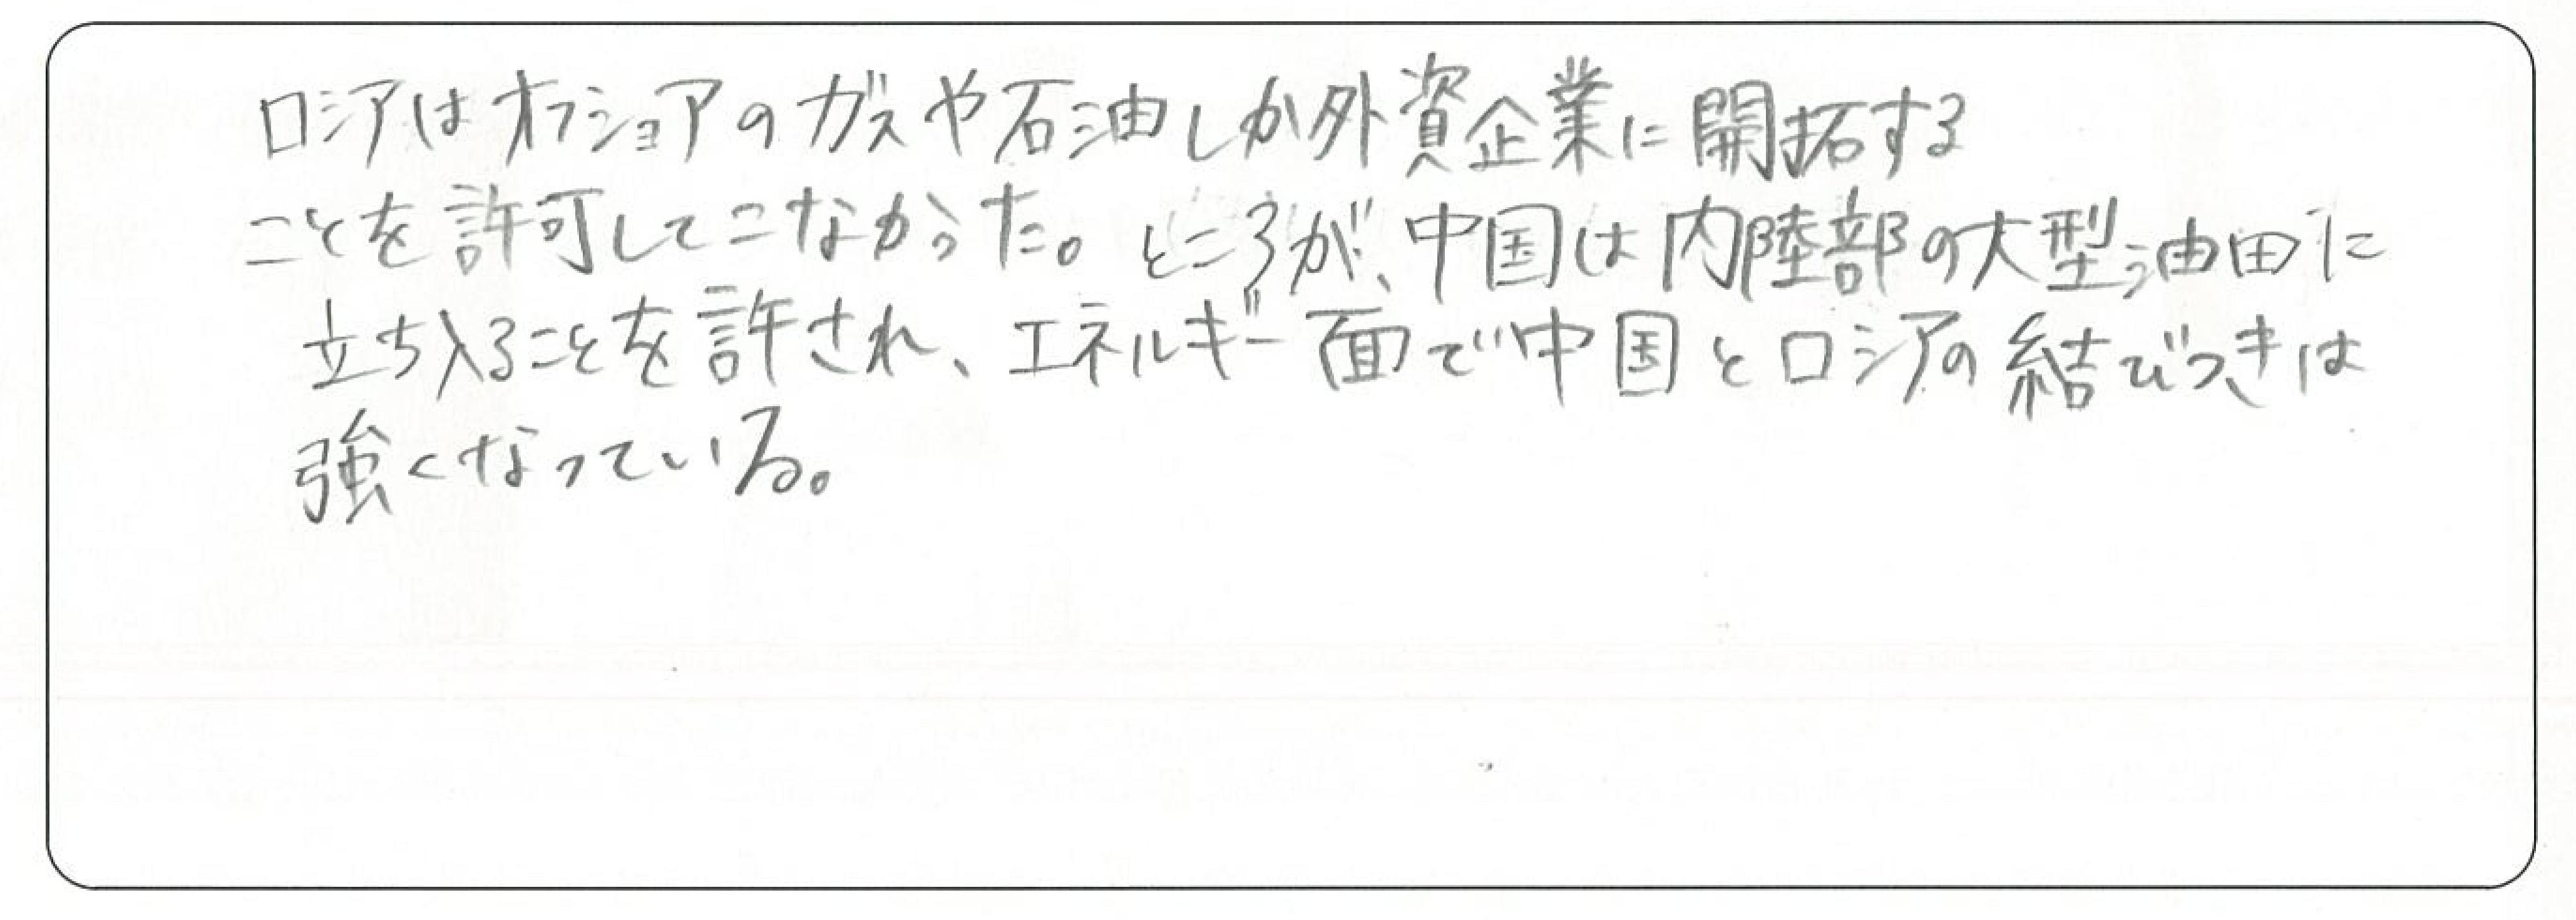 ロシアはオフショアのガスや石油しか外資企業に開拓する
ことを許可してこなかった。ところが、中国は内陸部の大型油田に
立ち入ることを許され、エネルギー面で中国とロシアの結びつきは
強くなっている。